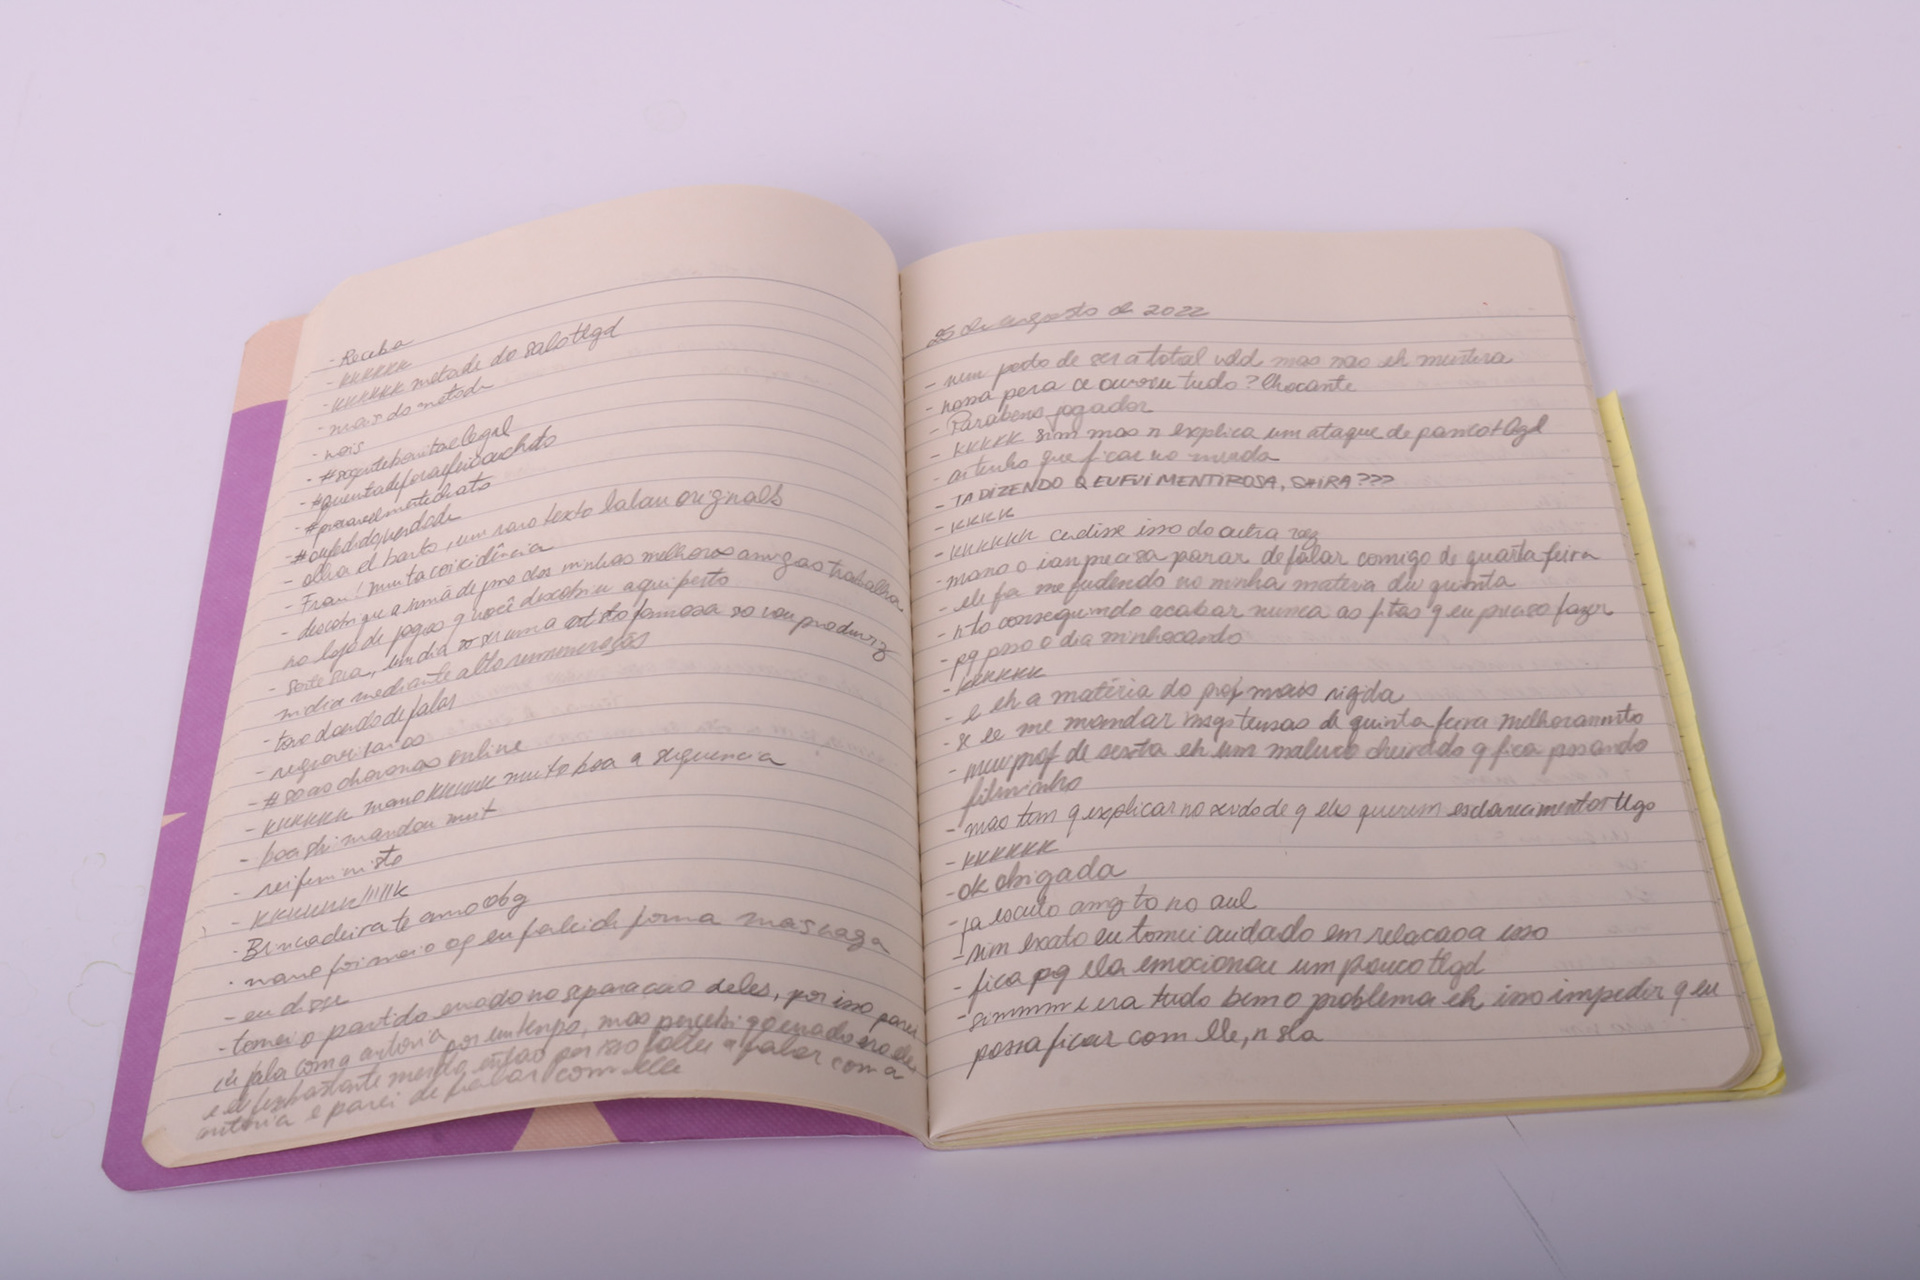 - Receba
- kkkkkk
- kkkkkk metade do salo tlgd
- mais da metade
- nois
- #sagentebonitaelegal
- #quentadeforaefeioechato
- #provavelmentechato
- #
- olha el barto, um raro texto balau originals
- Frau! muita coincidência
- descobri que a irmã de uma das minhas melhores amigas trabalha
na loja de jogos q você descobriu aqui perto
- sorte sua, um dia so ser uma artista famosa so vou produzir
midia mediante alta remuneração
- tavo doendo de falar
-
- #soaschavonas online
- kkkkkk mano kkkkkk muito boa a sequencia
- boa shi mandou muit
-
- kkkkkkk/////k
- Brincadeira te amo obg
- mano foi meio oq eu falei de forma mais vaga
- eu disse
- tomei o partido errado na separacao deles, por isso parei
de falar com a antonia por um tempo, mas percebi q o errado era ele
e ele bastante merda então por isso voltei a falar com a
antonia e parei de falar com elle
25 de agosto de 2022
- num podo de ser a total vdd mas nao eh mentira
- nossa pera ce ouviu tudo? Chocante
- Parabens jogador
- kkkkk sim mas n explica um ataque de panico tlgd
- ai tenho que ficar na merda
- TA DIZENDO Q EU FUI MENTIROSA, SHIRA???
- kkkk
- kkkkkk ce disse isso da outra vez
- mano o ian precisa parar de falar comigo de quarta feira
- ele fa me fudendo na minha materia du quinta
- n to conseguindo acabar nunca as fitas q eu preciso fazer
- pq paso o dia minhocando
- kkkkkk
- e eh a matéria do prof mais rigida
- se ce me mandar msgs tensas de quinta feira melhoraria mto
- meu prof de sexta eh um maluco cheirado q fica passando
filminho
- mas tem q explicar no sentido de q eles querem esclarecimento tlgd
- kkkkkk
- ok obrigada
- ja escuto amg to no aul
- sim exato eu tomei cuidado em relacao a isso
- fica pq ela emocionou um pouco tlgd
- simmmm e era tudo bem o problema eh isso impedir q eu
possa ficar com elle, n sla